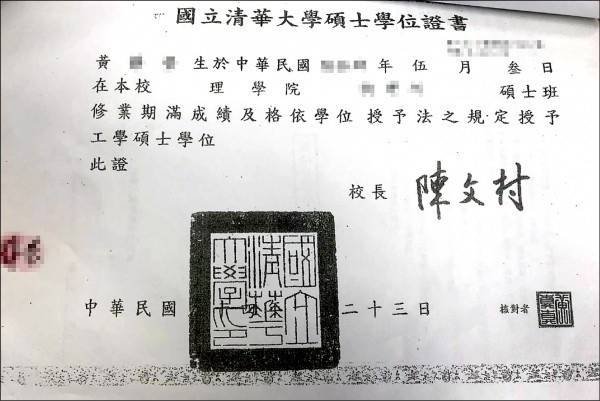 國立清華大學碩士學位證書
黃 生於中華民國 年伍月叁日
在本校 理學院 碩士班
修業期滿成績及格依學位授予法之規定授予
工學碩士學位
此證
校長 陳文村
國立清華大學印
中華民國 二十三日
核對者